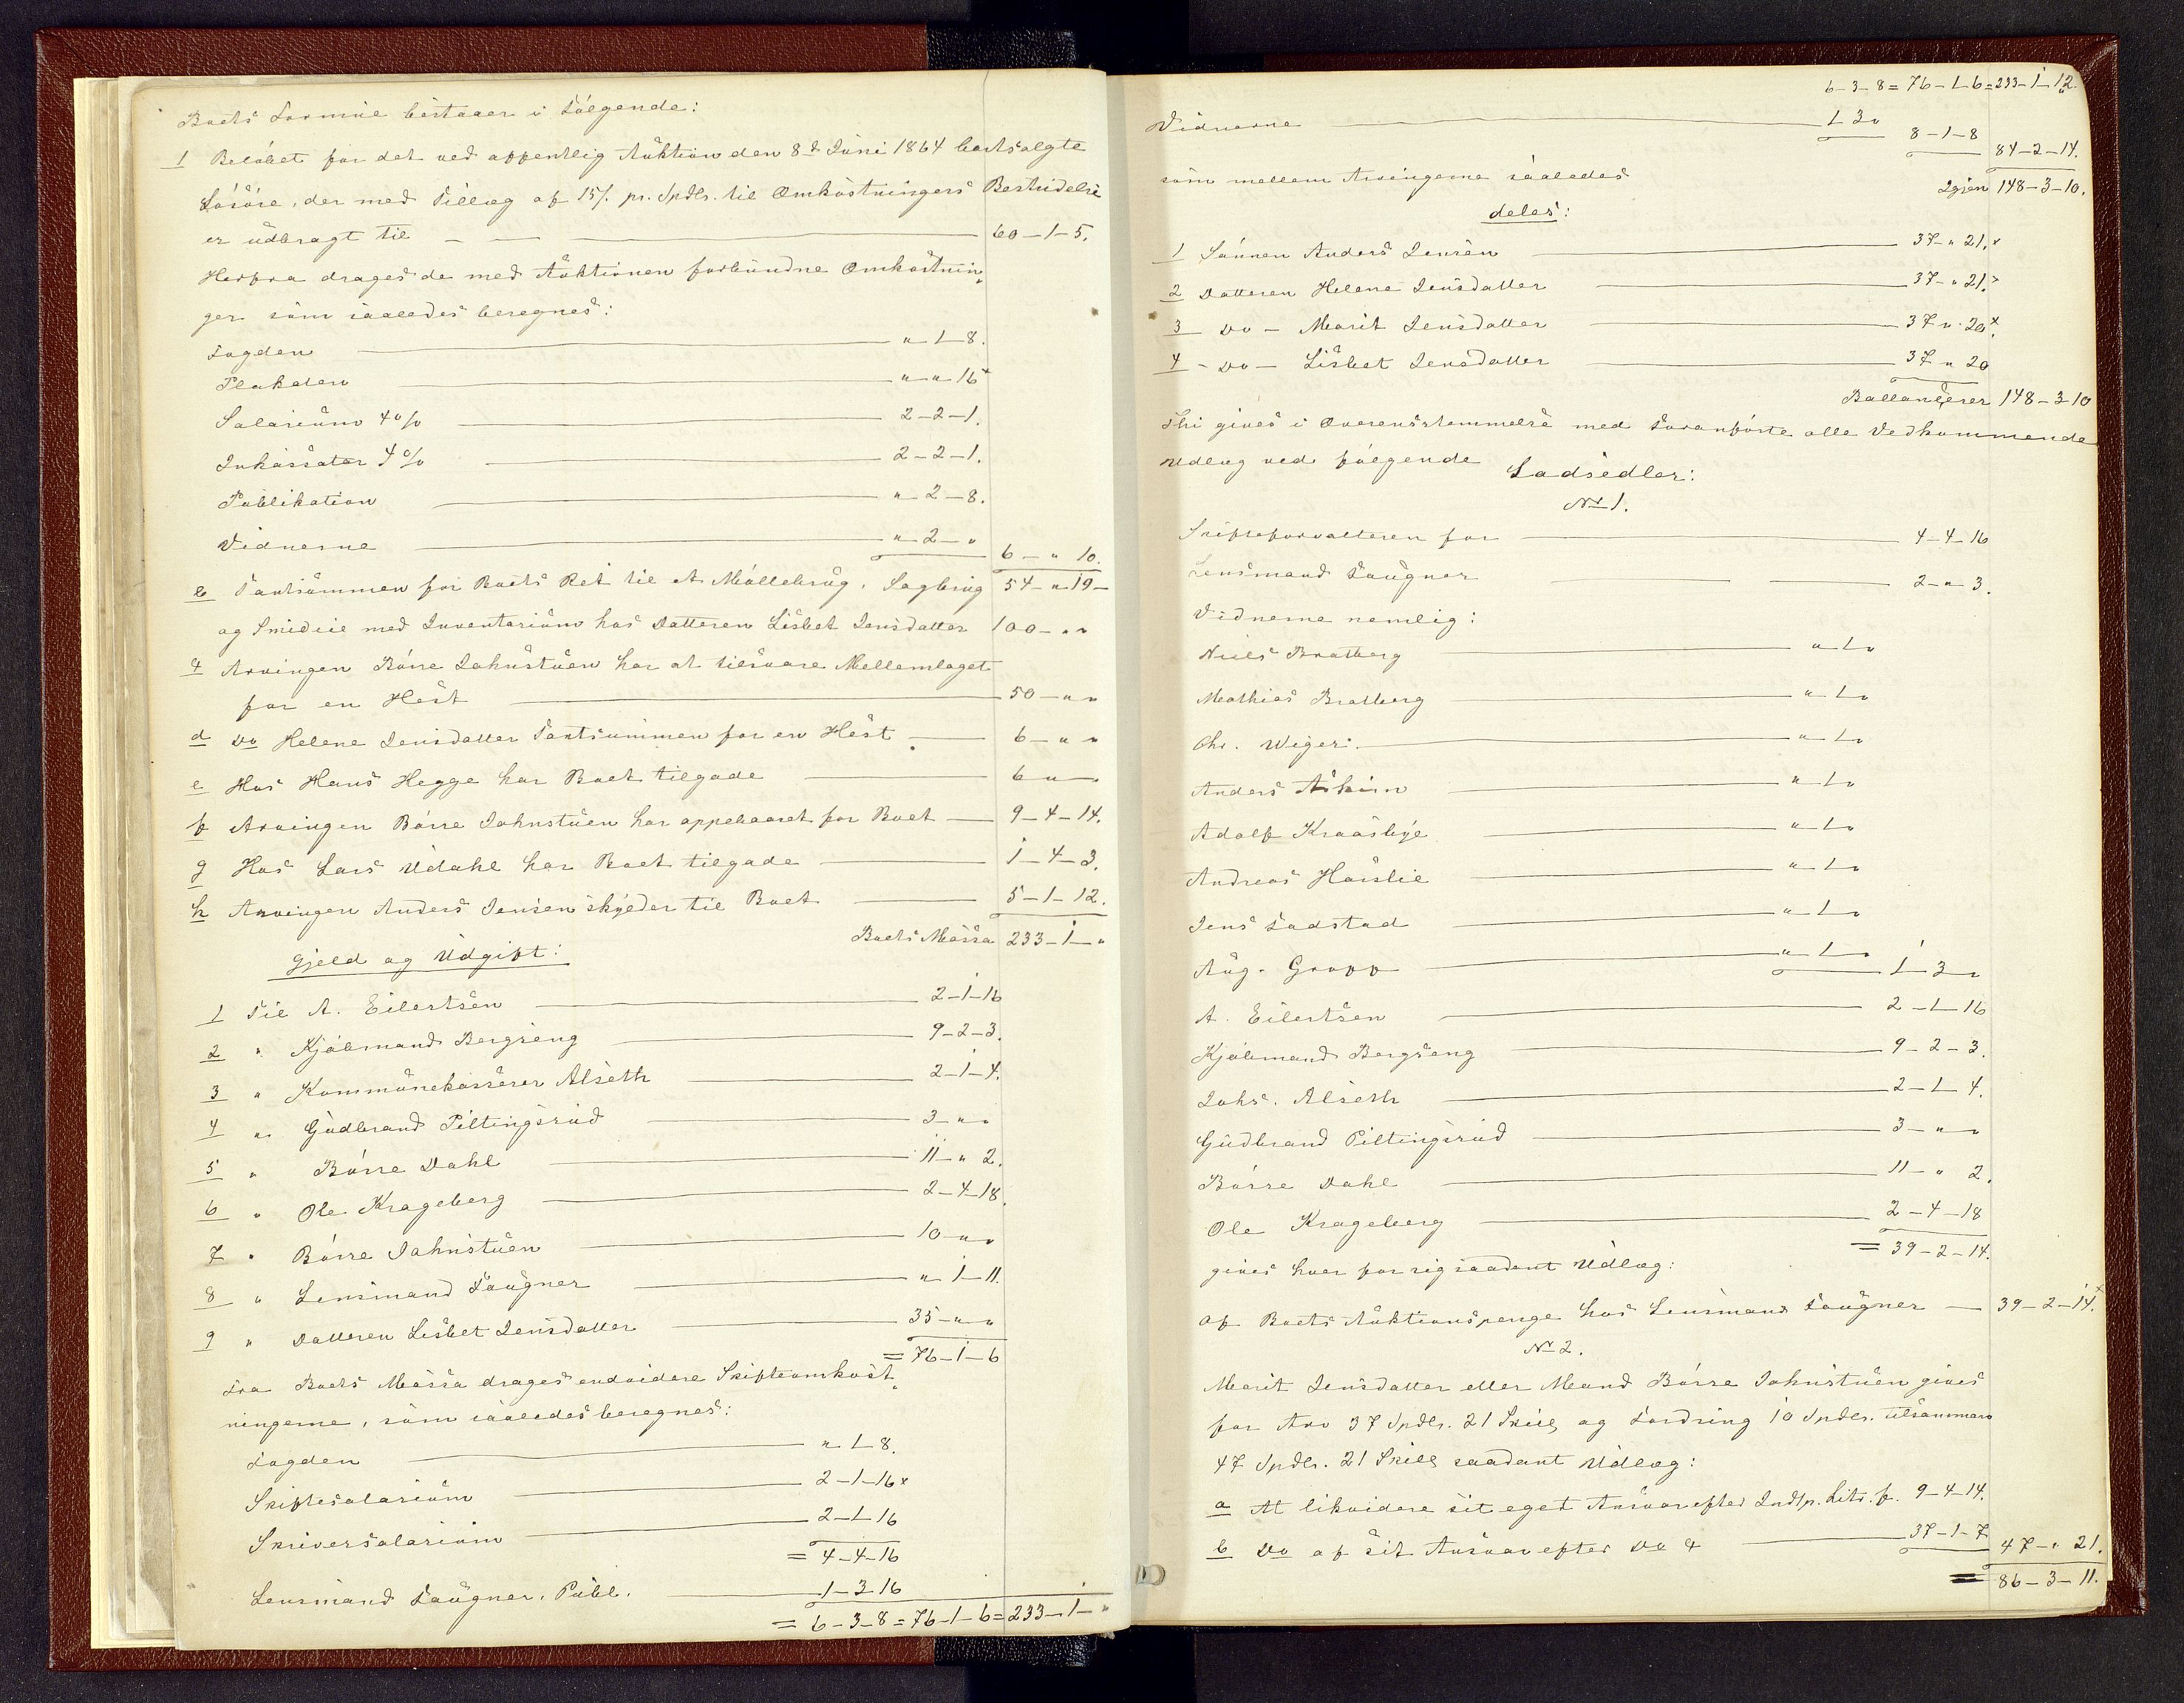 Boets Formue bestaaer i Følgende:
1 Beløbet for det ved offentlig Auktion den 8de Juni 1864 bortsolgte
Løsøre, der med Tillæg af 15 /. pr. Spdlr. til Omkostningers Bestridelse
er udbragt til — — 60-1-5.
Herfra drages de med Auktionen forbundne Omkostnin„
ger som saaledes beregnes:
Fogden — „ 1-8.
Plakaten — „ „ 16
Salarium 4 % — 2-2-1.
Inkassator 4 % — 2-2-1.
Publikation — „ 2-8.
Vidnerne — „ 2 - „ 6 - „ 10.
b Pantsummen for Boets Ret til et Møllebrug, Sagbrug 54 - „ 19 -
og Smidie med Inventarium hos Datteren Lisbet Jensdatter 100 - „ „
c Arvingen Börre Johnstuen har at tilsvare Mellemlaget
for en Hest — 50 - „ „
d Do Helene Jensdatter Pantsummen for en Hest — 6 - „ „
e Hos Hans Hegge har Boet tilgode — 6 „ —
f Arvingen Börre Johnstuen har oppebaaret for Boet — 9-4-14.
g Hos Lars Udahl har Boet tilgode — 1-4-3.
h Arvingen Anders Jensen skylder til Boet — 5-1-12.
Boets Massa 233-1- „
Gjeld og Udgift:
1 Til A. Eilertsen — 2-1-16
2 „ Kjøbmand Bergseng — 9-2-3.
3 „ Kommunekasserer Alseth — 2-1-4.
4 „ Gudbrand Piltingsrud — 3 - „ „
5 „ Börre Dahl — 11 - „ 2.
6 „ Ole Krageberg — 2-4-18.
7 „ Börre Johnstuen — 10 - „ „
8 „ Lensmand Faugner — „ 1-11.
9 „ Datteren Lisbet Jensdatter — 35 - „ „
= 76-1-6
Fra Boets Massa drages endvidere Skifteomkost„
ningerne, som saaledes beregnes:
Fogden — „ 1-8.
Skiftesalarium — 2-1-16
Skriversalarium — 2-1-16
= 4-4-16
Lensmand Faugner, Publ. — 1-3 16
= 6-3-8 = 76-1-6 = 233-1- „
6-3-8 = 76-1-6 = 233-1-12.
Vidnerne — 1 3 „ 8-1-8 84-2-14.
som mellem Arvingerne saaledes Igjen 148-3-10.
deles:
1 Sønnen Anders Jensen — 37 - „ 21.
2 Datteren Helene Jensdatter — 37 - „ 21.
3 Do - Marit Jensdatter — 37 „ 20.
4 - Do - Lisbet Jensdatter — 37 „ 20
Ballancerer 148-3-10
Thi gives i Overensstemmelse med Foranførte alle Vedkommende
Udlæg ved følgende Lodsedler:
No 1.
Skifteforvalteren for — 4-4-16
Lensmand Faugner — 2 - „ 3.
Vidnerne nemlig:
Niels Bratberg — „ 1 „
Mathias Bratberg — „ 1 „
Chr. Wiger. — „ 1 „
Anders Askim — „ 1 „
Adolf Kraasbye — „ 1 „
Andreas Haislie — „ 1 „
Jens Fodstad — „ 1 „
Aug. Gropp — „ 1 „ 1-3 „
A. Eilertsen — 2-1-16
Kjøbmand Bergseng — 9-2-3.
Johs. Alseth — 2-1-4.
Gudbrand Piltingsrud — 3 - „ „
Börre Dahl — 11 - „ 2.
Ole Krageberg — 2-4-18
= 39-2-14.
gives hver for sig saadant Udlæg:
Af Boets Auktionspenge hos Lensmand Faugner — 39-2-14.
No 2.
Marit Jensdatter eller Mand Börre Johnstuen gives
for Arv 37 Spdlr. 21 Skill. og Fordring 10 Spdlr. tilsammen
47 Spdlr. 21 Skill saadant Udlæg:
a At likvidere sit eget Ansvar efter Indtp. Litr. f. 9-4-14.
b Do af sit Ansvar efter Do c — 37-1-7 47 - „ 21.
= 86-3-11.